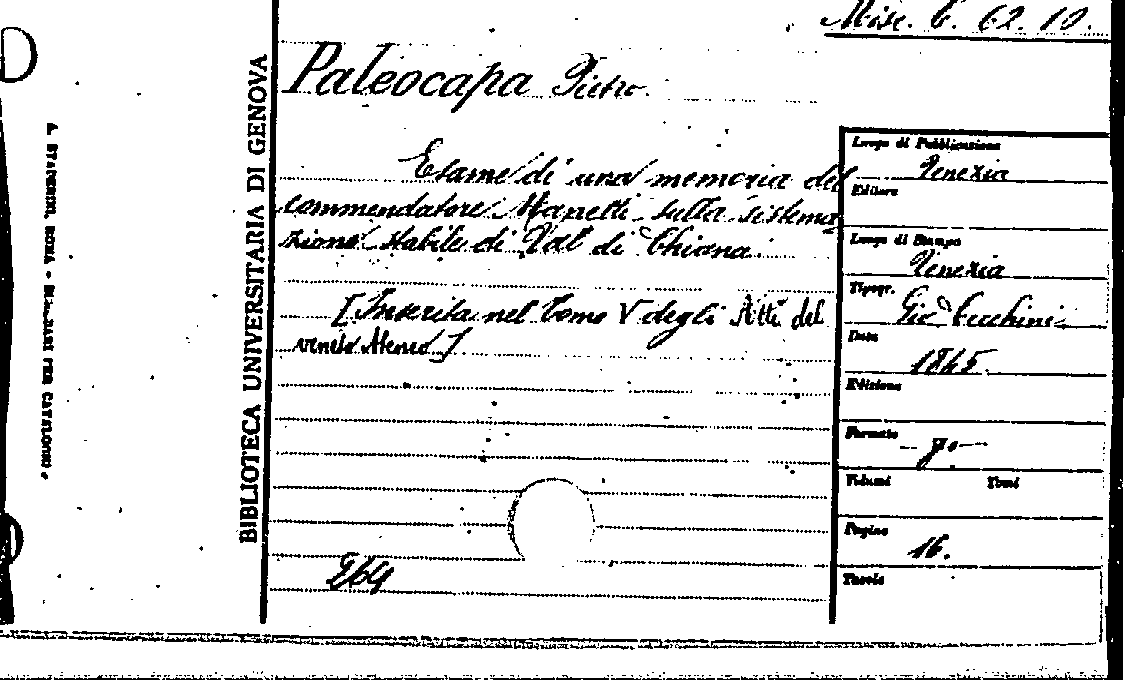 Misc. C. 62. 10.
BIBLIOTECA UNIVERSITARIA DI GENOVA
Paleocapa Pietro.
Esame di una memoria del
commendatore Manetti sulla sistema
zione stabile di Val di Chiana.
[Inserita nel Tomo V degli Atti del
veneto Ateneo]
264
Luogo di Pubblicazione
Venezia
Editore
Luogo di Stampa
Venezia
Tipogr.
Gio Cecchini
Data
1845.
Edizione
Formato
Volumi Tomi
Pagine
16.
Tavole